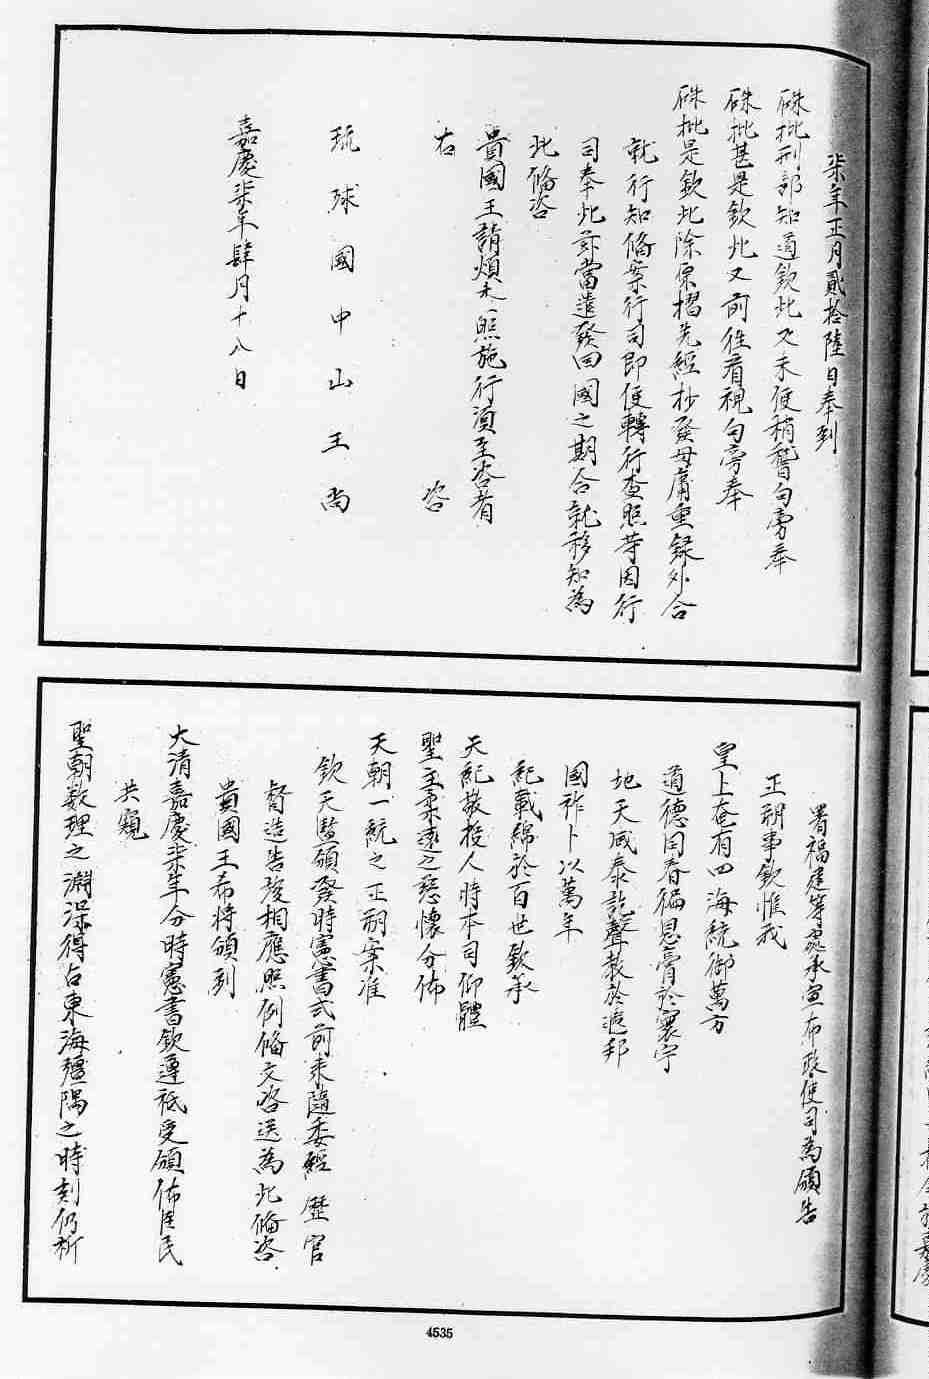 柒年正月貳拾陸日奉到
硃批刑部知道欽此又未便稍稽句旁奉
硃批甚是欽此又前往看視句旁奉
硃批是欽此除原摺先經抄發毋庸重錄外合
就行知俻案行司即便轉行查照等因行
司奉此茲當遣發回國之期合就移知為
此俻咨
貴國王請煩查照施行須至咨者
右咨
琉球國中山王尚
嘉慶柒年肆月十八日
署福建等處承宣布政使司為頒告
正朔事欽惟我
皇上奄有四海統御萬方
道德同春徧恩膏於寰宇
地天咸泰訖聲教於遐邦
國祚卜以萬年
紀載綿於百世欽承
天紀敬授人時本司仰體
聖主柔遠之慈懷分佈
天朝一統之正朔案准
欽天監頒發時憲書式前來隨委經歷官
督造告竣相應照例俻文咨送為此俻咨
貴國王希將頒到
大清嘉慶柒年分時憲書欽遵祗受頒佈臣民
共窺
聖朝数理之淵深得占東海疆隅之時刻仍祈
4535